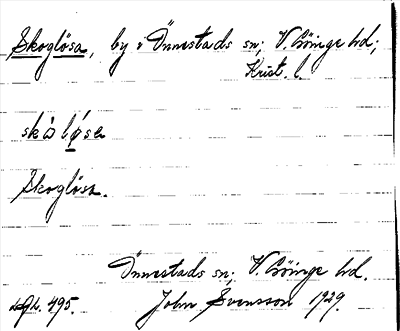 Skoglösa, by i Önnestads sn; V. Göinge hd;
Krist. l.
skò lø̀sa
Skoglösa.
Önnestads sn; V. Göinge hd.
495. John Svensson 1929.